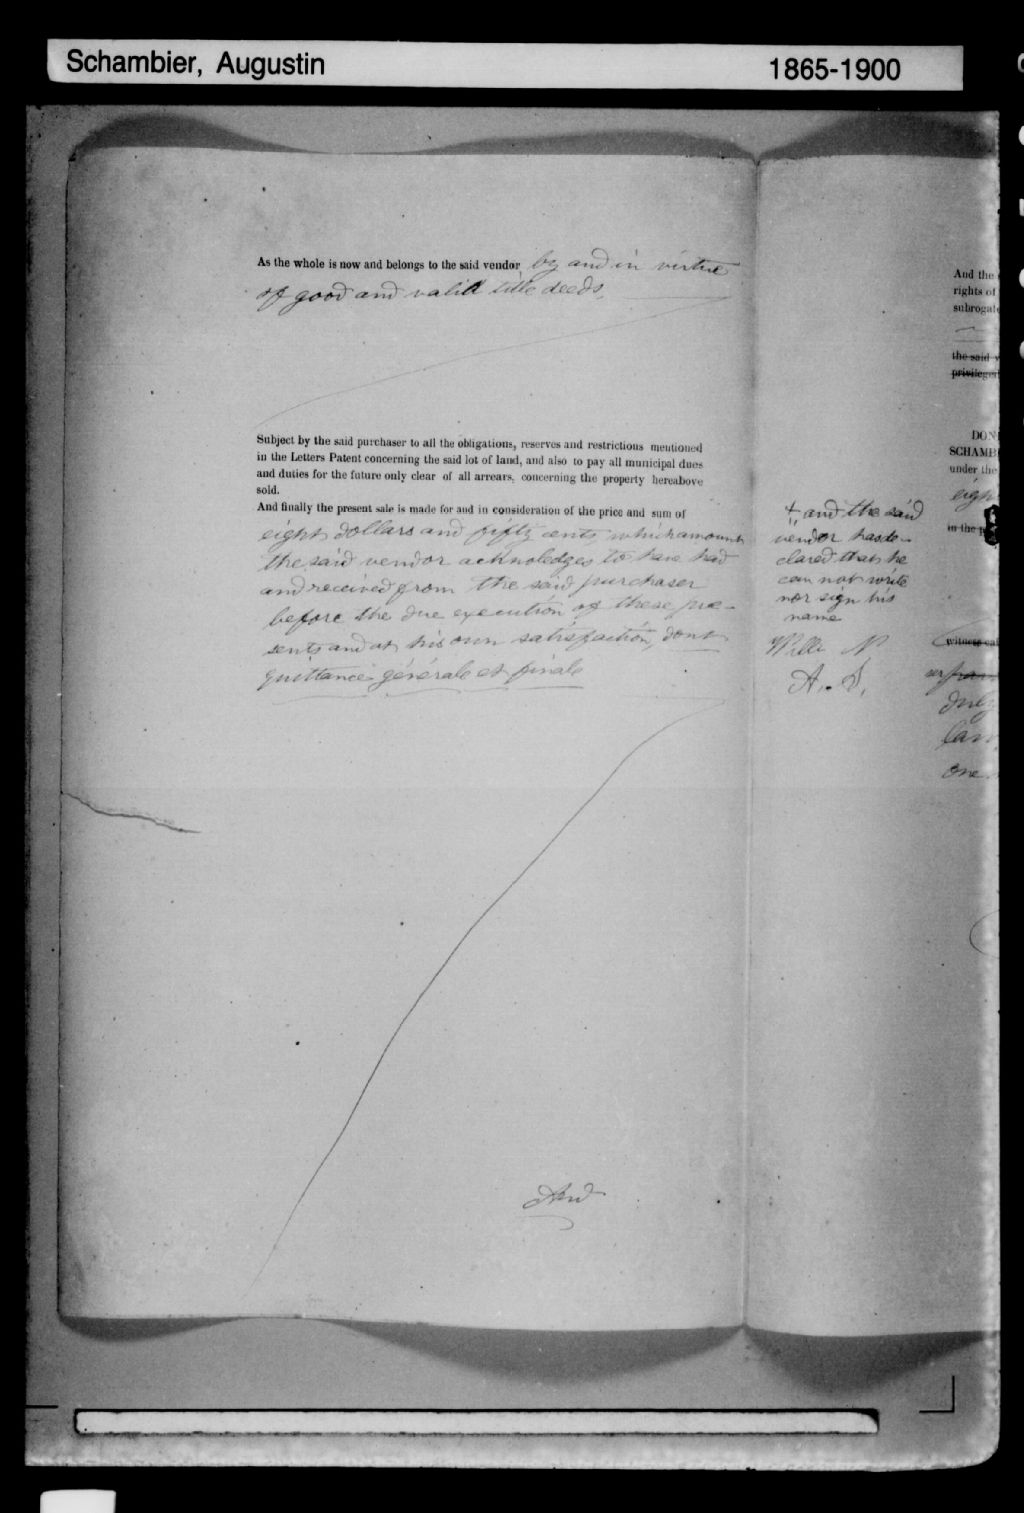 Schambier, Augustin
1865-1900
As the whole is now and belongs to the said vendor by and in virtue
of good and valid title deeds.
Subject by the said purchaser to all the obligations, reserves and restrictions mentioned
in the Letters Patent concerning the said lot of land, and also to pay all municipal dues
and duties for the future only clear of all arrears, concerning the property hereabove
sold.
And finally the present sale is made for and in consideration of the price and sum of
eight dollars and fifty cents which amount
the said vendor acknoledges to have had
and received from the said purchaser
before the due execution of these pre-
sents and at his own satisfaction, dont
quittance générale et finale
And
+ and the said
vendor has de-
clared that he
can not write
nor sign his
name
A. S.
And the
rights of
subrogat
the said v
privileged
DON
SCHAMB
under the
eigh
in the p
witness
duly
law
one